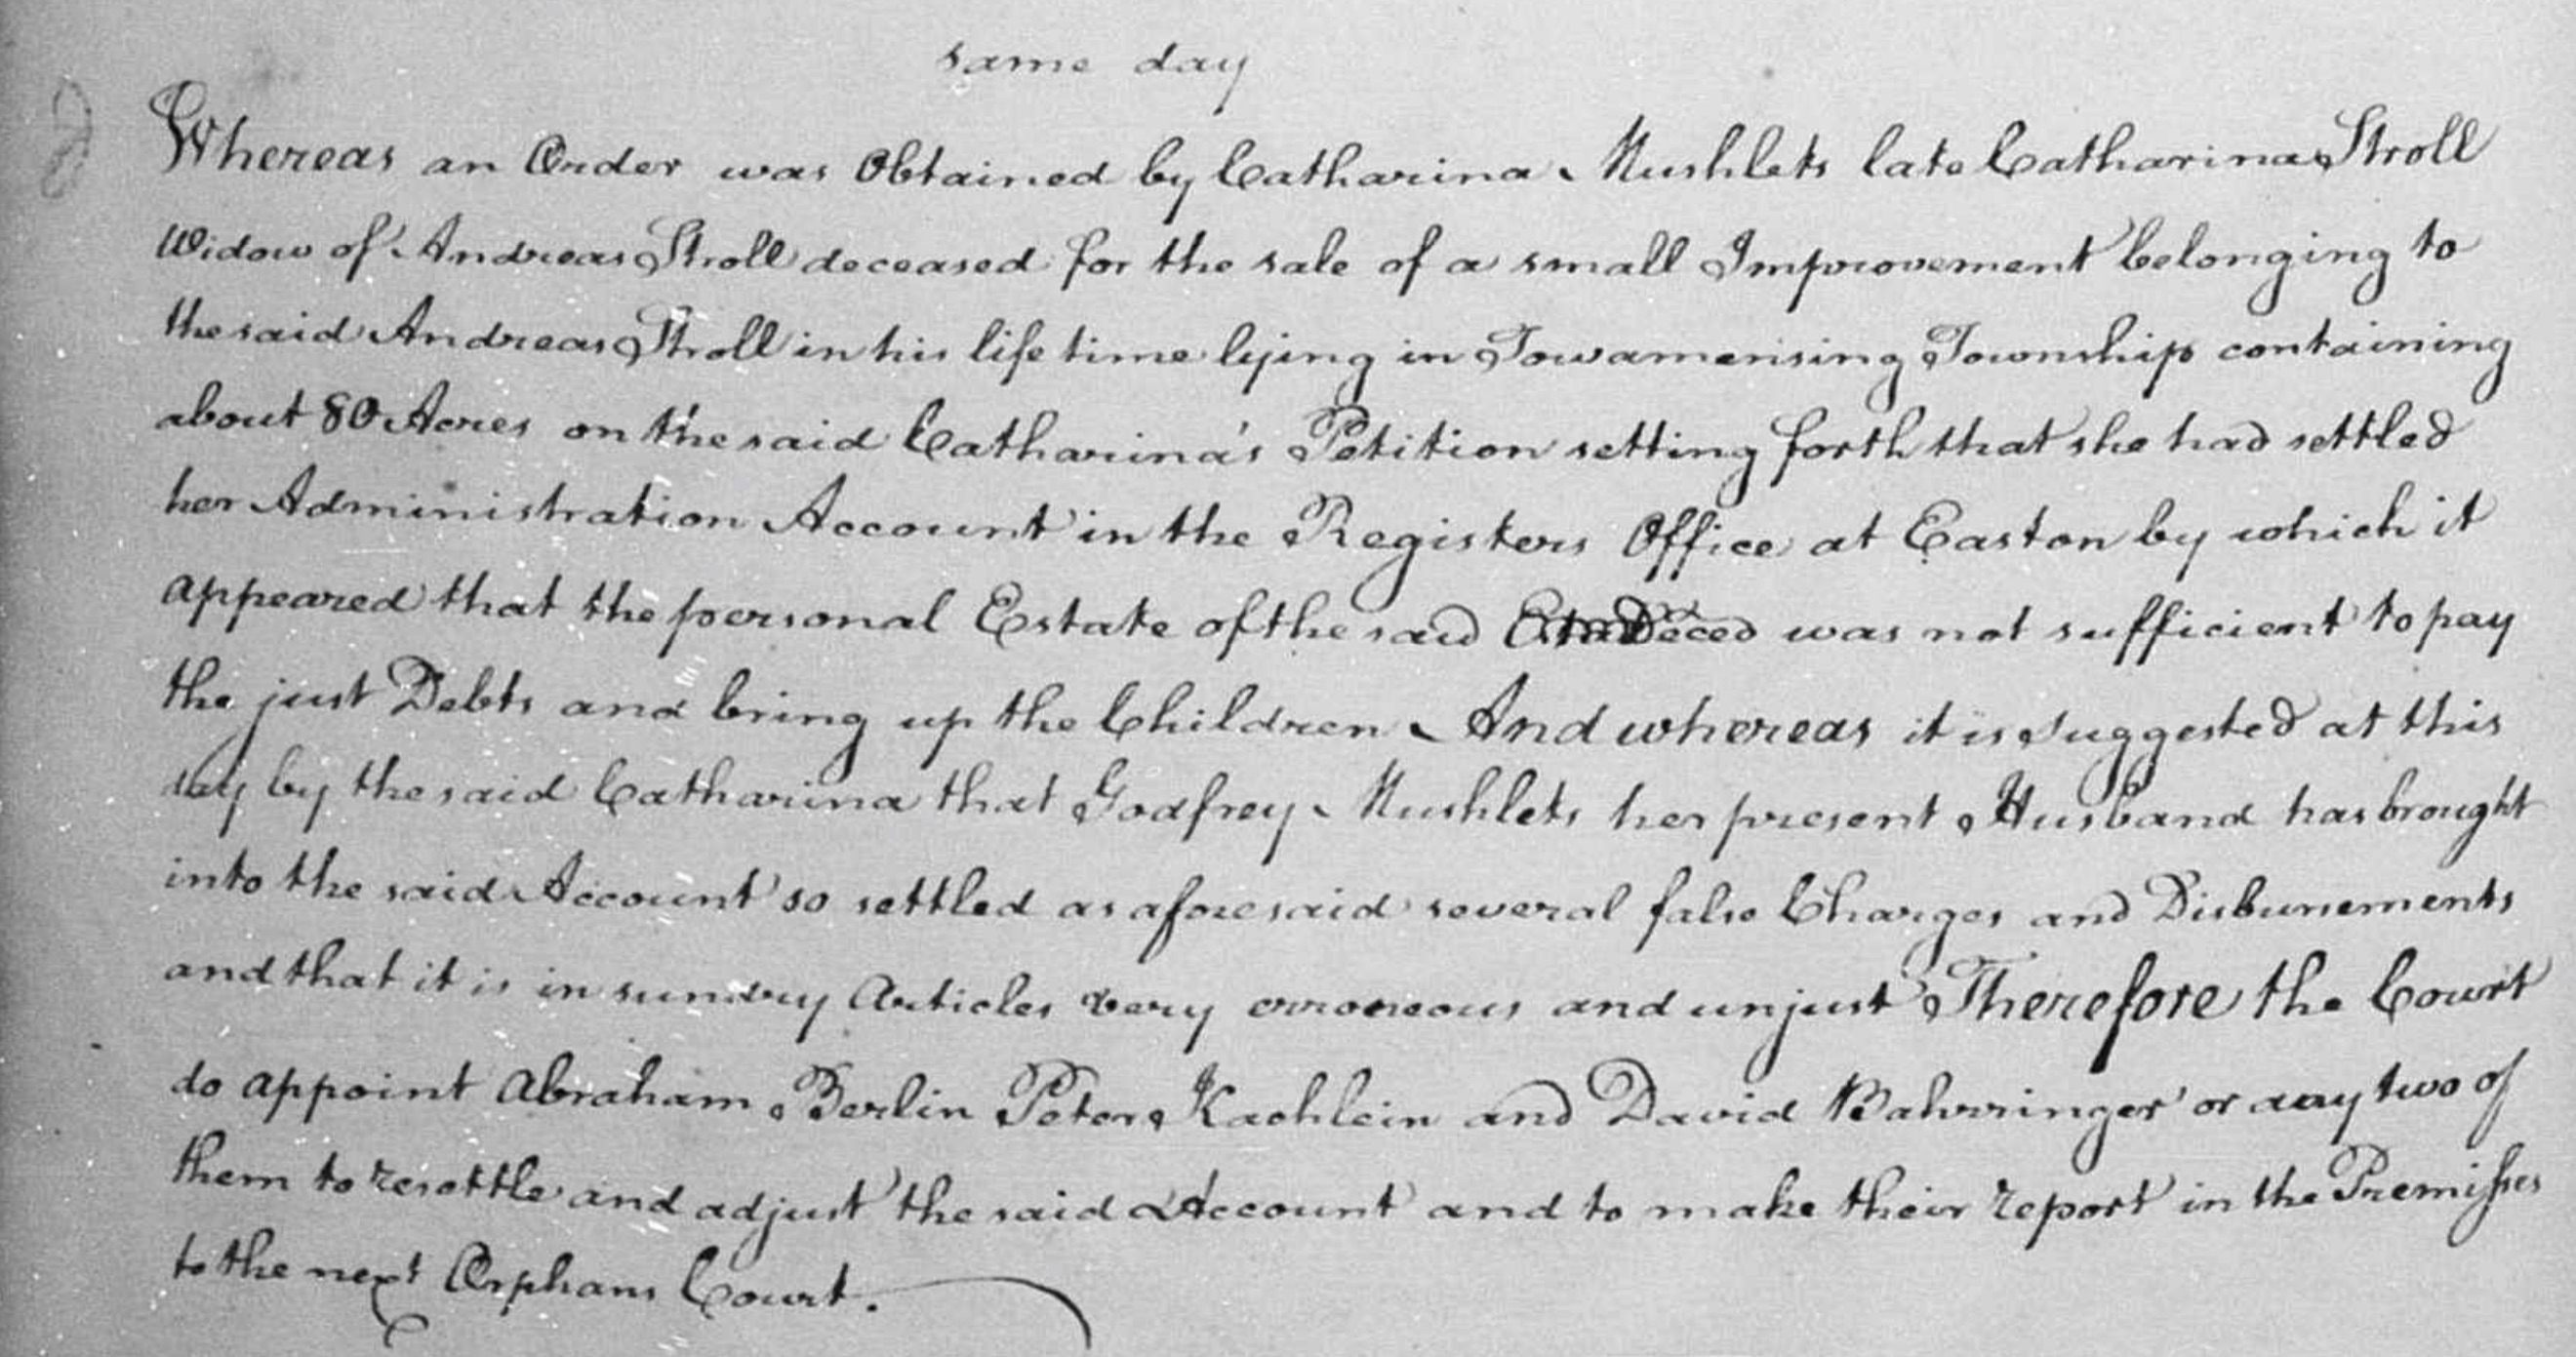 same day
Whereas an Order was Obtained by Catharina Mushlets late Catharina Stroll
Widow of Andreas Stroll deceased for the sale of a small Improvement belonging to
the said Andreas Stroll in his life time lying in Towamensing Township containing
about 80 Acres on the said Catharina's Petition setting forth that she had settled
her Administration Account in the Registers Office at Easton by which it
appeared that the personal Estate of the said Deced was not sufficient to pay
the just Debts and bring up the Children And whereas it is Suggested at this
day by the said Catharina that Godfrey Mushlets her present Husband has brought
into the said Account so settled as aforesaid several false Charges and Disbursements
and that it is in sundry Articles very erroneous and unjust Therefore the Court
do appoint Abraham Berlin Peter Kachlein and David Bahrringer or any two of
them to resettle and adjust the said Account and to make their report in the Premisses
to the next Orphans Court.